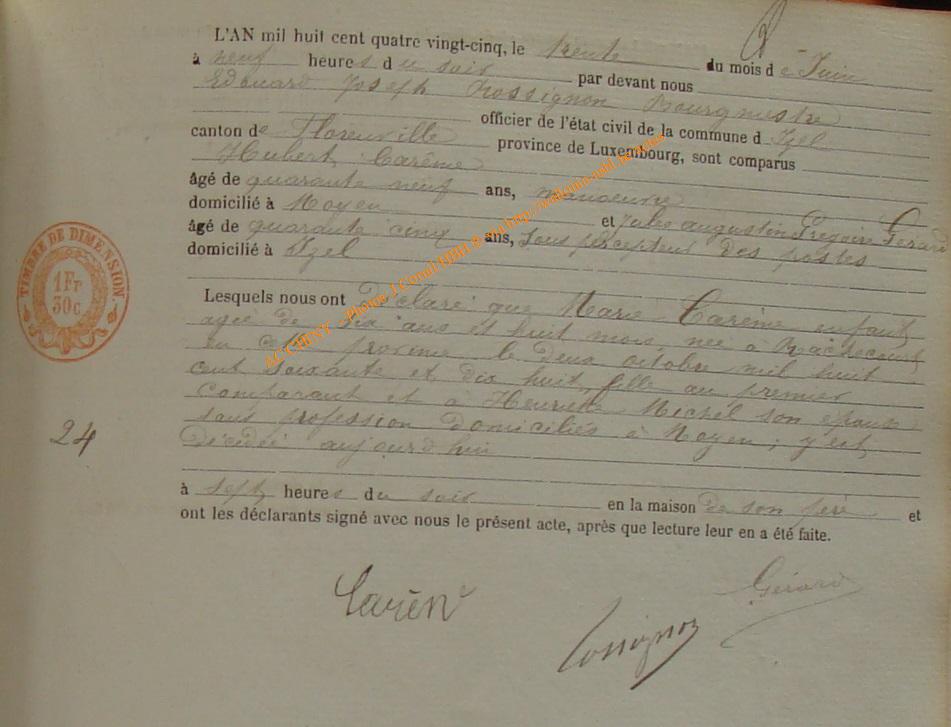 L'AN mil huit cent quatre vingt-cinq, le trente du mois de Juin
à neuf heures du soir par devant nous
Edouard Joseph Rossignon Bourgmestre
officier de l'état civil de la commune d Izel
canton de Florenville province de Luxembourg, sont comparus
Hubert Carême
âgé de quarante neuf ans, manoeuvre
domicilié à Moyen et Jules Augustin Grégoire Gérard
âgé de quarante cinq ans, sous percepteur des postes
domicilié à Izel
Lesquels nous ont Déclaré que Marie Carême enfant
agée de six ans et huit mois, née à Rachecourt
en cette province le deux octobre mil huit
cent soixante et dix huit, fille au premier
comparant et à Henriette Michel son épouse
sans profession domiciliés à Moyen, y est
décédée aujourd'hui
à sept heures du soir en la maison de son père et
ont les déclarants signé avec nous le présent acte, après que lecture leur en a été faite.
TIMBRE DE DIMENSION
1 Fr
30 c.
24
Carême
Gérard
Rossignon